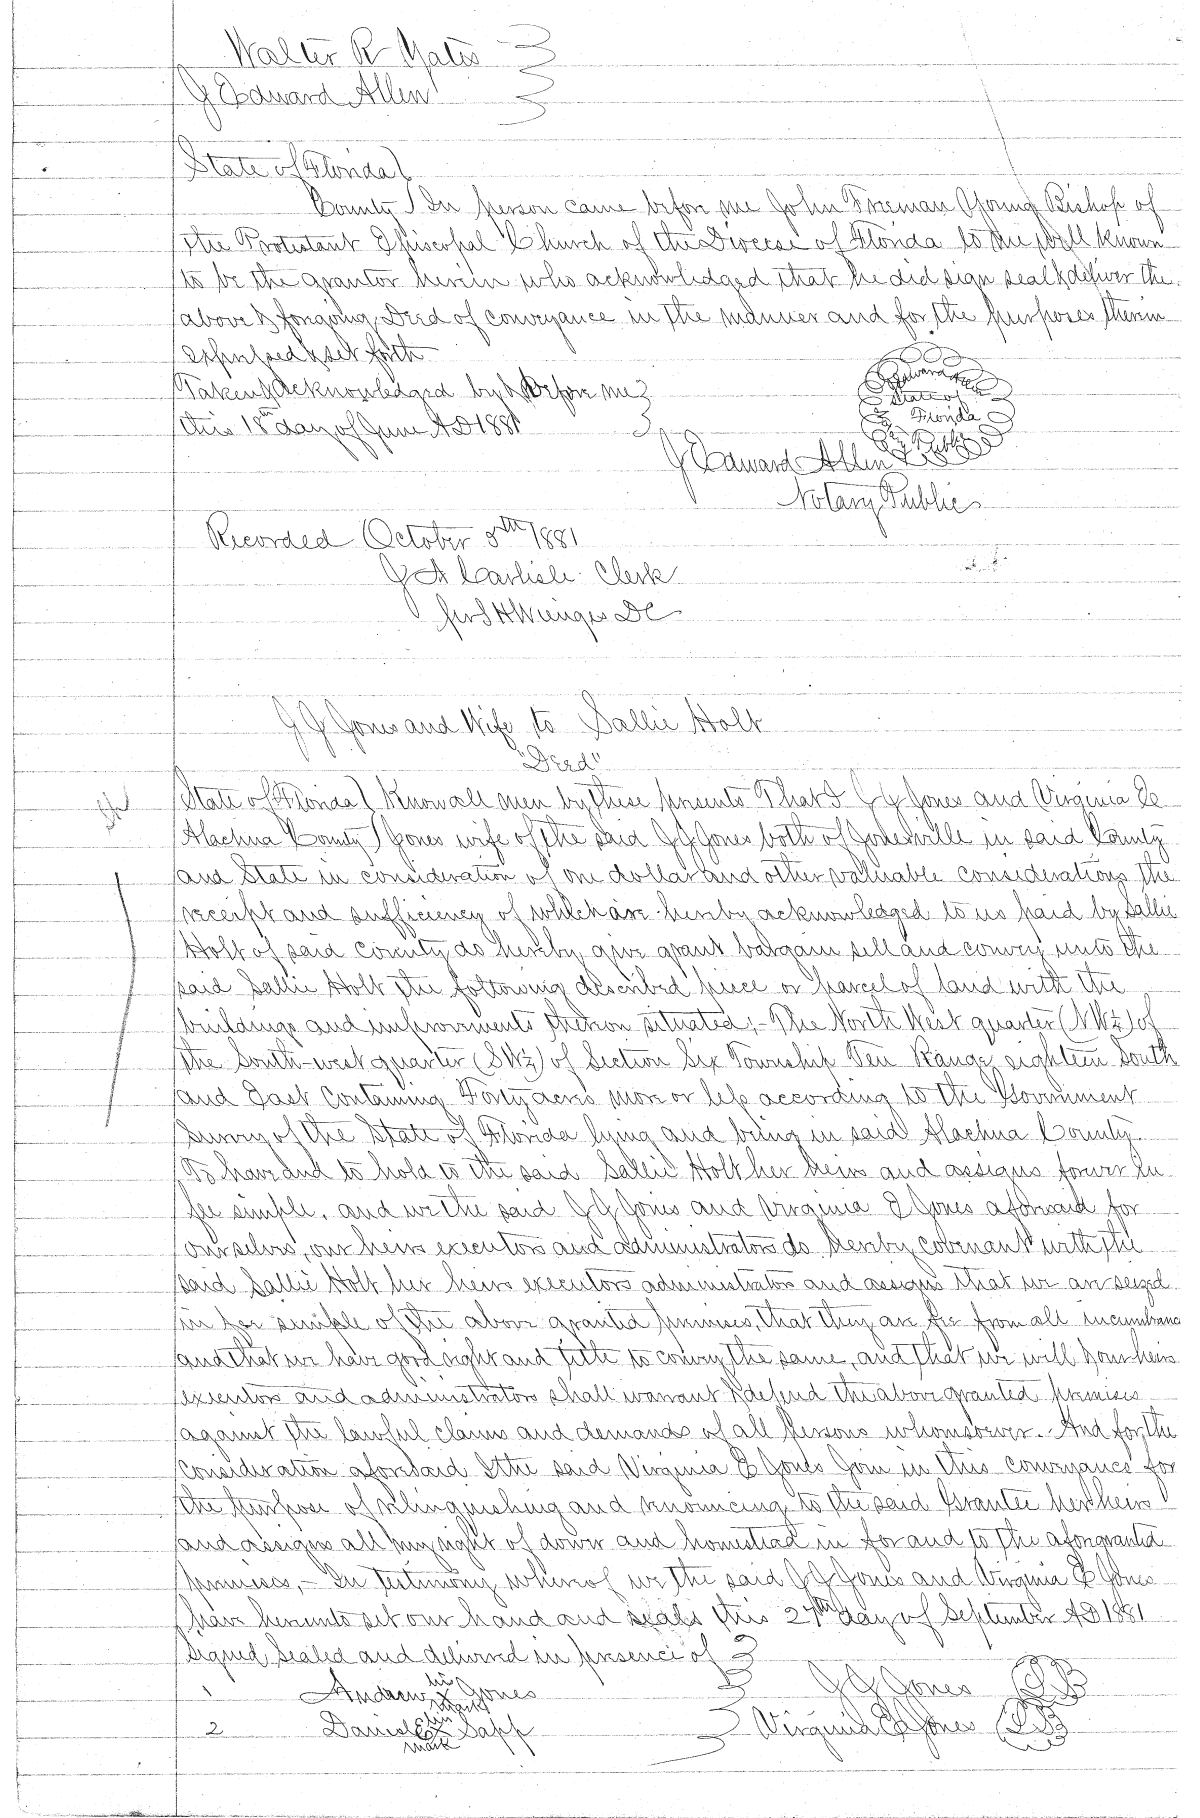 Walter R Yates
J Edward Allen
State of Florida
County In person came before me John Freeman Young Bishop of
the Protestant Episcopal Church of the Diocese of Florida to me well known
to be the grantor herein who acknowledged that he did sign seal & deliver the
above & forgoing Deed of conveyance in the manner and for the purposes therein
expressed & set forth
Taken & acknowledged by & Before me
this 18th day of June AD 1881
J Edward Allen
State of
Florida
Public
J Edward Allen
Notary Public
Recorded October 5th 1881
J A Carlisle Clerk
per S H Wienges DC
J G Jones and Wife to Sallie Holt
"Deed"
State of Florida Know all men by these presents That I J G Jones and Virginia E
Alachua County Jones wife of the said J G Jones both of Jonesville in said County
and State in consideration of one dollar and other valuable considerations the
receipt and sufficiency of which are hereby acknowledged to us paid by Sallie
Holt of said county do hereby give grant bargain sell and convey unto the
said Sallie Holt the following described piece or parcel of land with the
buildings and improvements thereon situated;- The North West quarter (NW¼) of
the South-west quarter (SW¼) of Section Six Township Ten Range eighteen South
and East Containing Forty acres more or less according to the Government
Survey of the State of Florida lying and being in said Alachua County.
To have and to hold to the said Sallie Holt her heirs and assigns forever In
fee simple, and we the said J G Jones and Virginia E Jones aforesaid for
ourselves, our heirs executors and administrators do hereby covenant with the
said Sallie Holt her heirs executors administrators and assigns that we are seized
in fee simple of the above granted premises, that they are free from all incumbrance
and that we have good right and title to convey the same, and that we will & our heirs
executors and administrators shall warrant & defend the above granted premises
against the lawful claims and demands of all persons whomsoever. And for the
consideration aforesaid I the said Virginia E Jones Join in this conveyance for
the purpose of relinquishing and renouncing to the said Grantee her heirs
and assigns all my right of dower and homestead in for and to the afore granted
premises,- In testimony whereof we the said J G Jones and Virginia E Jones
have hereunto set our hand and seals this 27th day of September AD 1881
Signed Sealed and delivered in presence of
1 Andrew his X mark Jones J G Jones
2 Daniel his X mark Sapp Virginia E Jones